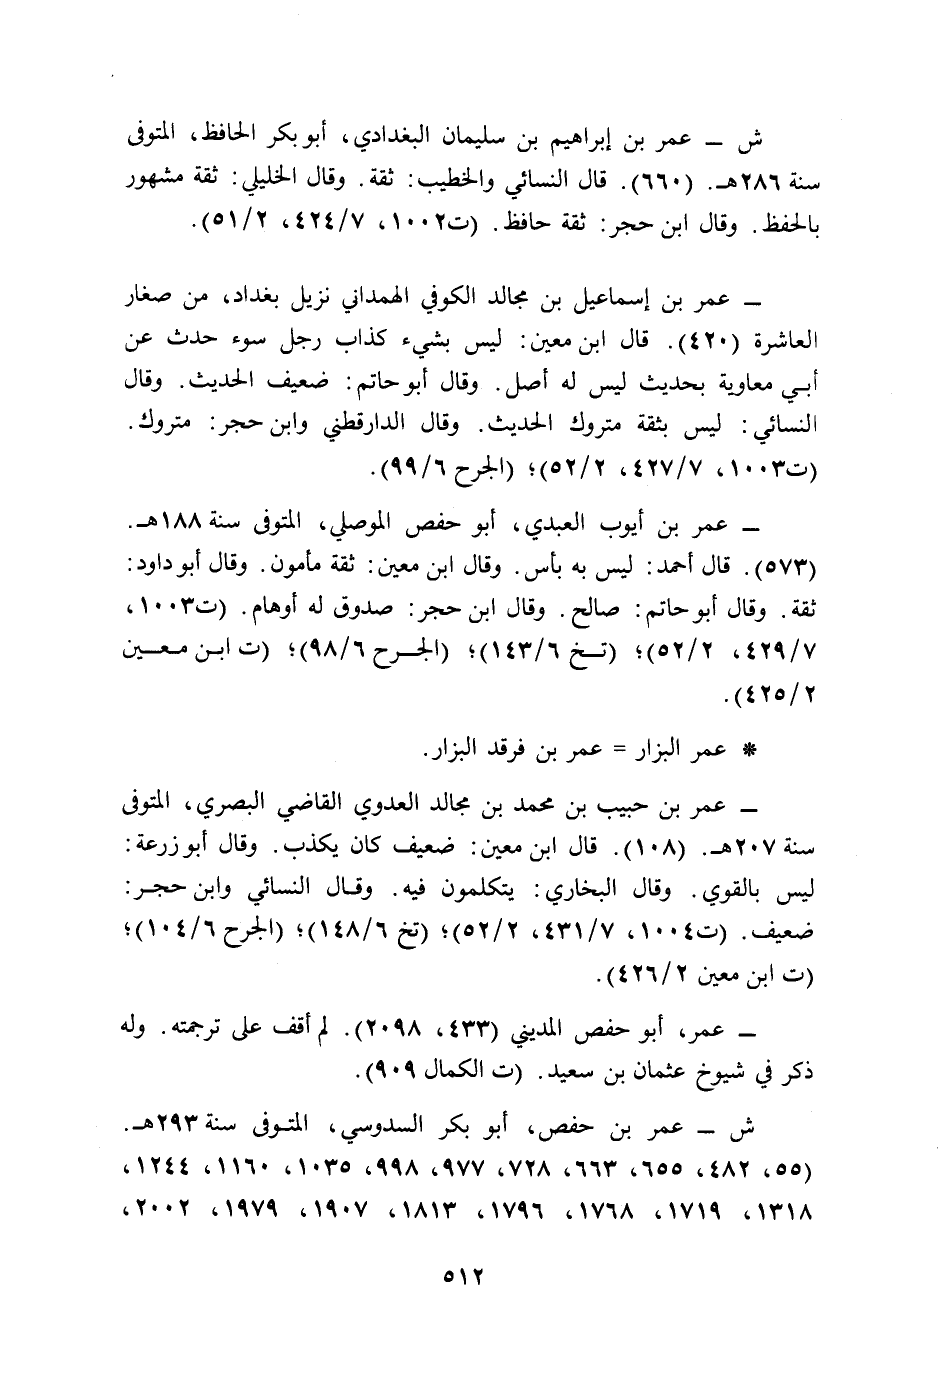 ش ــ عمر بن إبراهيم بن سليمان البغدادي، أبو بكر الحافظ، المتوفى
سنة ٢٨٦هـ. (٦٦٠). قال النسائي والخطيب: ثقة. وقال الخليلي: ثقة مشهور
بالحفظ. وقال ابن حجر: ثقة حافظ. (ت١٠٠٢، ٤٢٤/٧، ٥١/٢).
ــ عمر بن إسماعيل بن مجالد الكوفي الهمداني نزيل بغداد، من صغار
العاشرة (٤٢٠). قال ابن معين: ليس بشيء كذاب رجل سوء حدث عن
أبي معاوية بحديث ليس له أصل. وقال أبو حاتم: ضعيف الحديث. وقال
النسائي: ليس بثقة متروك الحديث. وقال الدارقطني وابن حجر: متروك.
(ت١٠٠٣، ٤٢٧/٧، ٥٢/٢)؛ (الجرح ٩٩/٦).
ــ عمر بن أيوب العبدي، أبو حفص الموصلي، المتوفى سنة ١٨٨هـ.
(٥٧٣). قال أحمد: ليس به بأس. وقال ابن معين: ثقة مأمون. وقال أبو داود:
ثقة. وقال أبو حاتم: صالح. وقال ابن حجر: صدوق له أوهام. (ت١٠٠٣،
٤٢٩/٧، ٥٢/٢)؛ (تـخ ١٤٣/٦)؛ (الجـرح ٩٨/٦)؛ (ت ابـن معـين
٤٢٥/٢).
* عمر البزار = عمر بن فرقد البزار.
ــ عمر بن حبيب بن محمد بن مجالد العدوي القاضي البصري، المتوفى
سنة ٢٠٧هـ. (١٠٨). قال ابن معين: ضعيف كان يكذب. وقال أبو زرعة:
ليس بالقوي. وقال البخاري: يتكلمون فيه. وقال النسائي وابن حجـر:
ضعيف. (ت١٠٠٤، ٤٣١/٧، ٥٢/٢)؛ (تخ ١٤٨/٦)؛ (الجرح ١٠٤/٦)؛
(ت ابن معين ٤٢٦/٢).
ــ عمر، أبو حفص المديني (٤٣٣، ٢٠٩٨). لم أقف على ترجمته. وله
ذكر في شيوخ عثمان بن سعيد. (ت الكمال ٩٠٩).
ش ــ عمر بن حفص، أبو بكر السدوسي، المتـوفى سنة ٢٩٣هـ.
(٥٥، ٤٨٢، ٦٥٥، ٦٦٣، ٧٢٨، ٩٧٧، ٩٩٨، ١٠٣٥، ١١٦٠، ١٢٤٤،
١٣١٨، ١٧١٩، ١٧٦٨، ١٧٩٦، ١٨١٣، ١٩٠٧، ١٩٧٩، ٢٠٠٢،
٥١٢